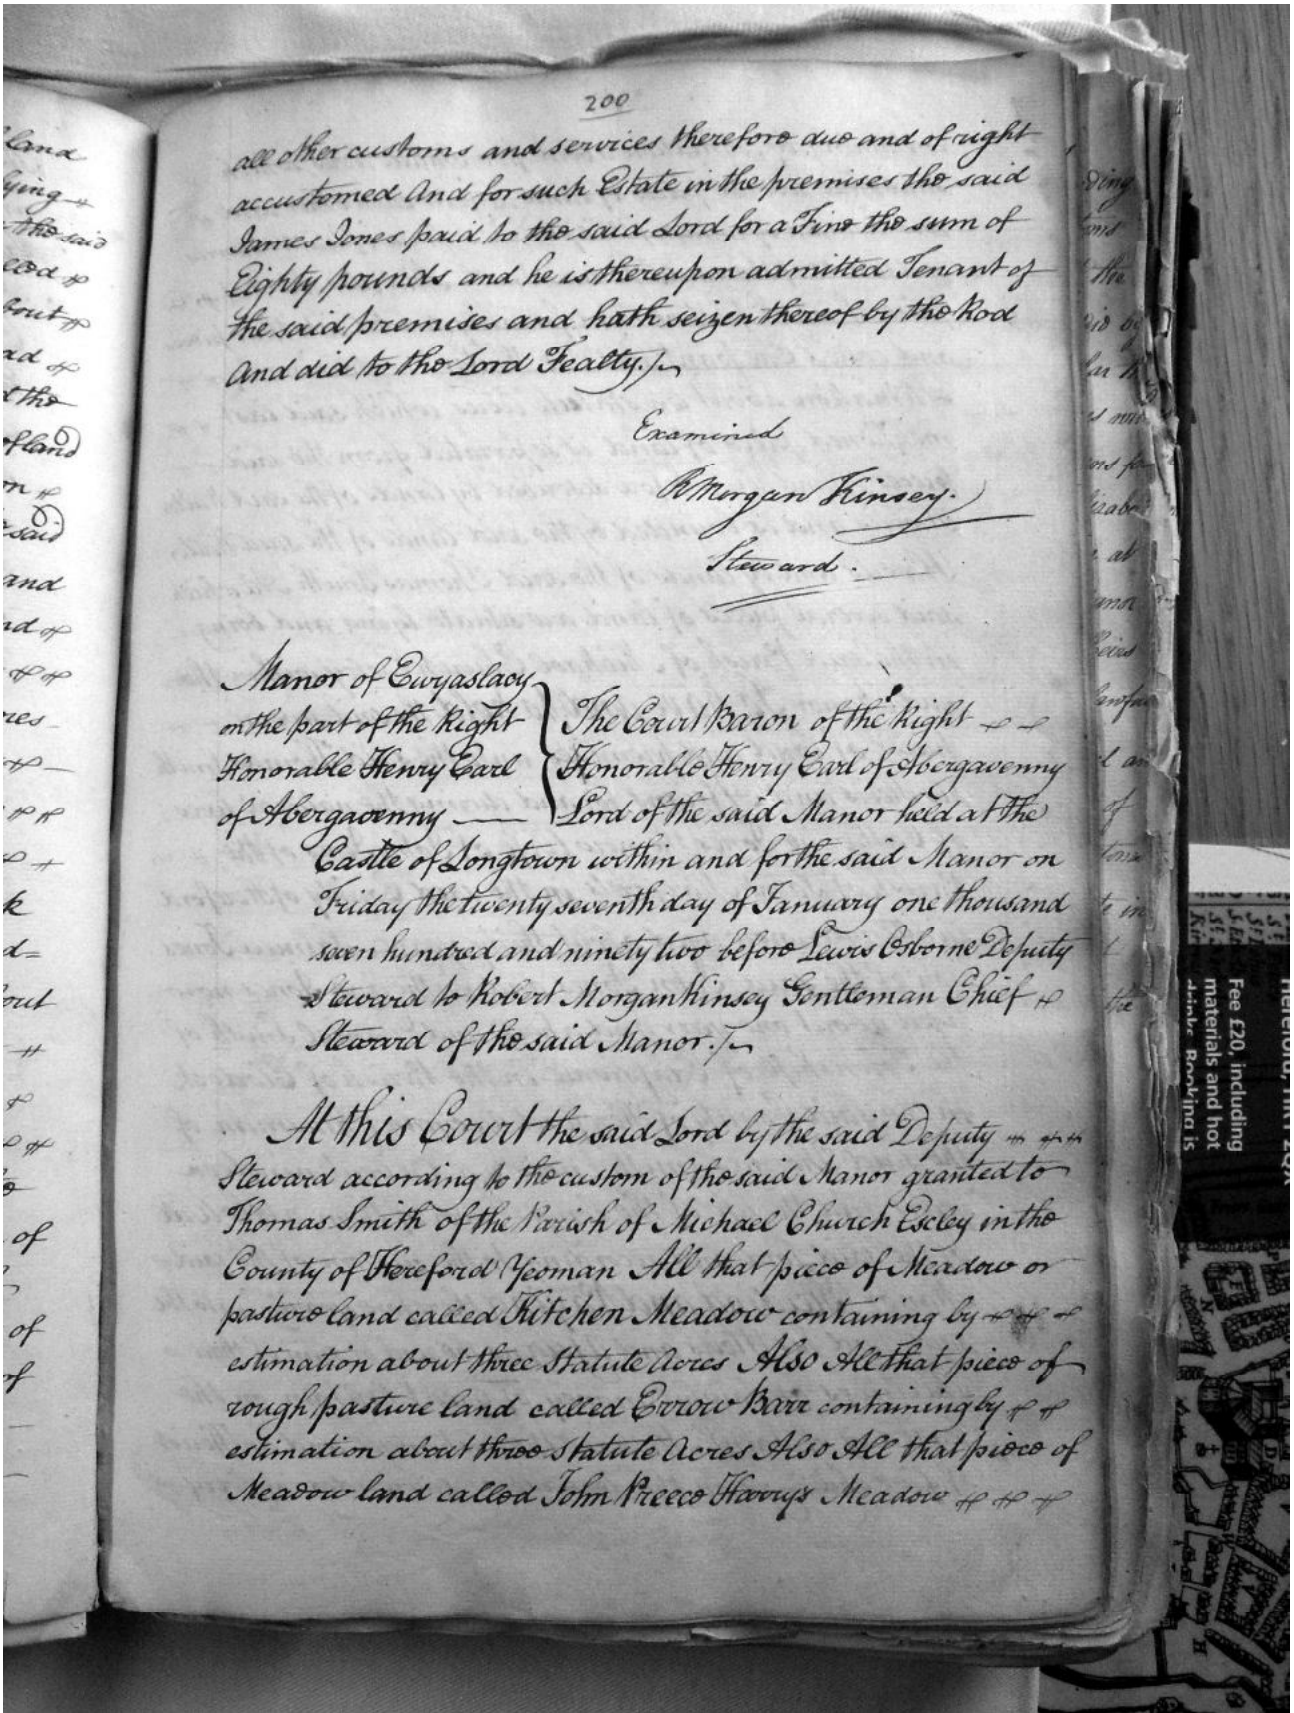 200
all other customs and services therefore due and of right
accustomed And for such Estate in the premises the said
James Jones paid to the said Lord for a Fine the sum of
Eighty pounds and he is thereupon admitted Tenant of
the said premises and hath seizen thereof by the Rod
And did to the Lord Fealty./~
Examined
R Morgan Kinsey.
Steward.
Manor of Ewyaslacy
on the part of the Right
Honorable Henry Earl
of Abergavenny —
The Court Baron of the Right
Honorable Henry Earl of Abergavenny
Lord of the said Manor held at the
Castle of Longtown within and for the said Manor on
Friday the twenty seventh day of January one thousand
seven hundred and ninety two before Lewis Osborne Deputy
Steward to Robert Morgan Kinsey Gentleman Chief
Steward of the said Manor./~
At this Court the said Lord by the said Deputy
Steward according to the custom of the said Manor granted to
Thomas Smith of the Parish of Michael Church Escley in the
County of Hereford Yeoman All that piece of Meadow or
pasture land called Kitchen Meadow containing by
estimation about three Statute Acres Also All that piece of
rough pasture land called Errow Barr containing by
estimation about three Statute Acres Also All that piece of
Meadow land called John Preece Harry's Meadow
land
lying
the said
bout
ad
d the
of land
on
said
and
nd
res
k
d=
out
of
of
of
ding
the
at
of
the
Fee £20, including
materials and hot
drinks. Booking is